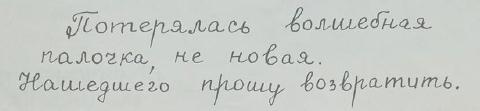 Потерялась волшебная
палочка, не новая.
Нашедшего прошу возвратить.